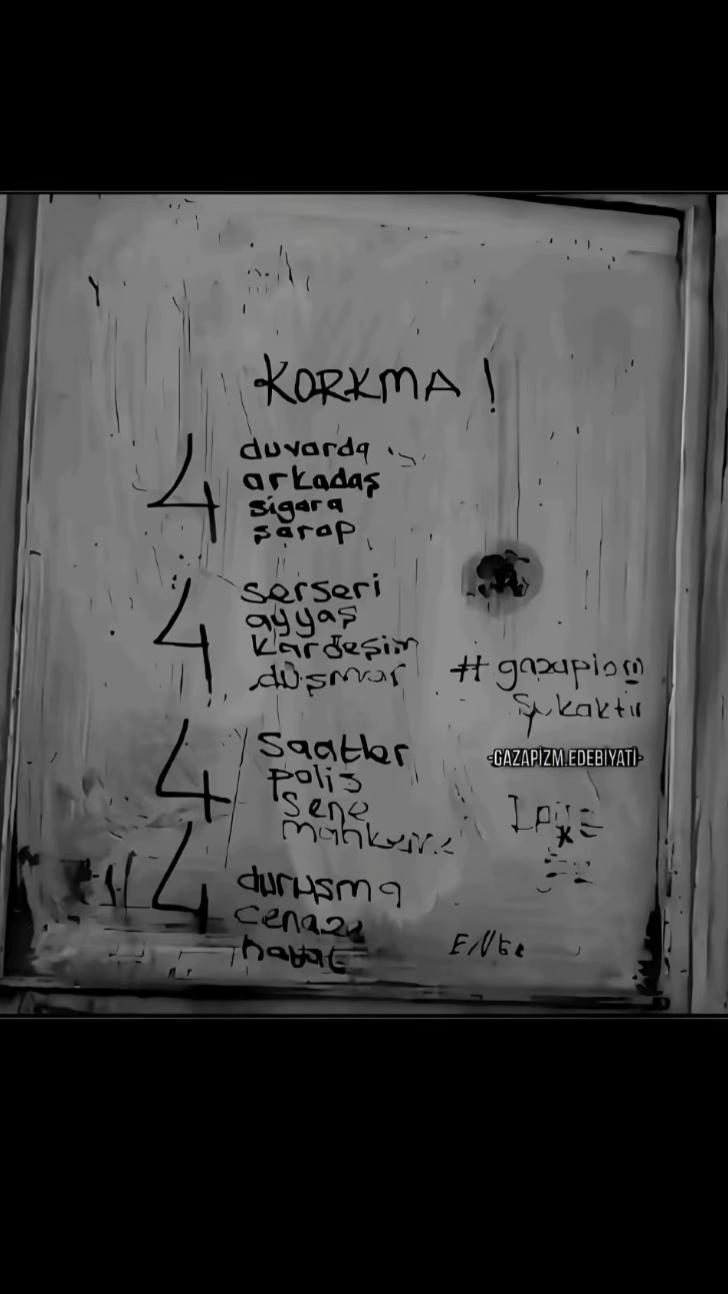 KORKMA !
4
duvarda
arkadaş
sigara
şarap
4
serseri
ayyaş
kardeşim
düşman
# gazapizm
sokaktır
-GAZAPİZM.EDEBİYATİ-
4
saatler
polis
sene
mahkeme
4
duruşma
cenaze
hayat